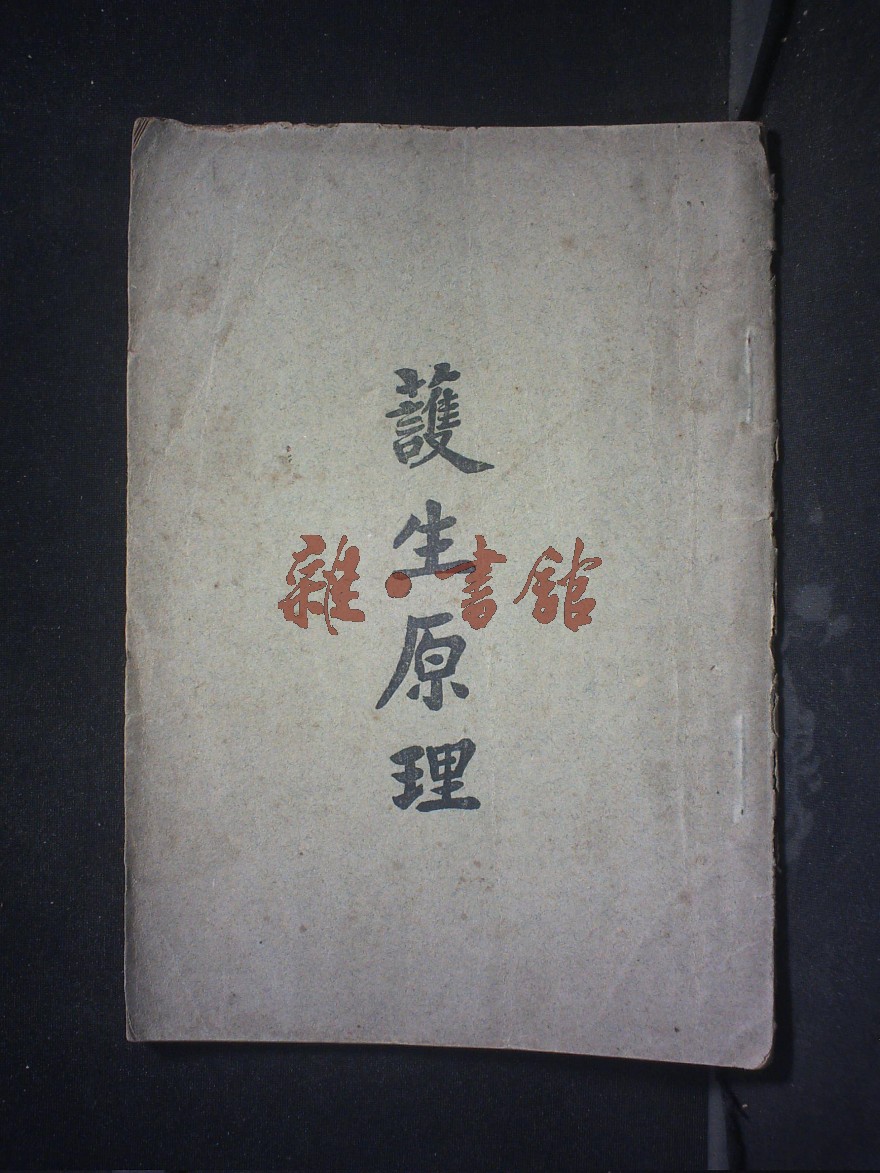 護生原理
雜·書館